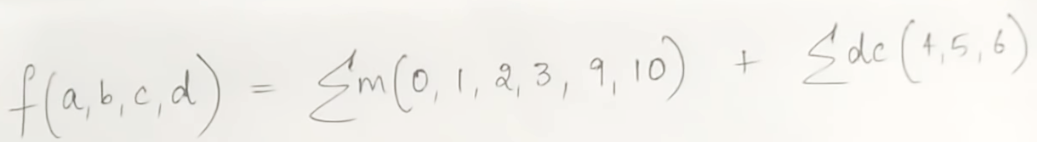 f(a,b,c,d) = Σm(0, 1, 2, 3, 9, 10) + Σdc(4,5,6)